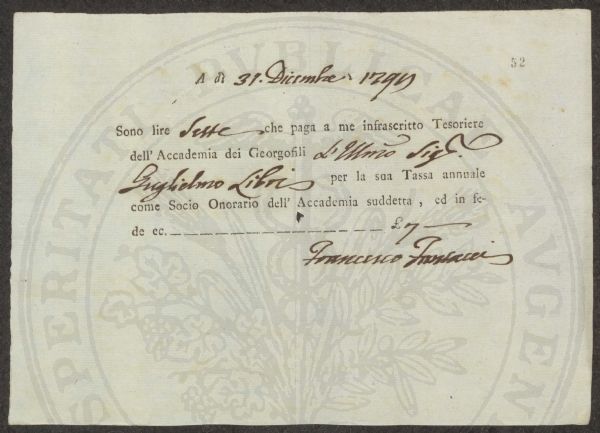 52
A dì 31. Dicembre
Sono lire Sette che paga a me infrascritto Tesoriere
dell' Accademia dei Georgofili L'Illmo Sigr.
Guglielmo Libri per la sua Tassa annuale
come Socio Onorario dell' Accademia suddetta, ed in fe-
de ec. £ 7
Francesco
PROSPERITATI PVBLICAE AVGENDAE